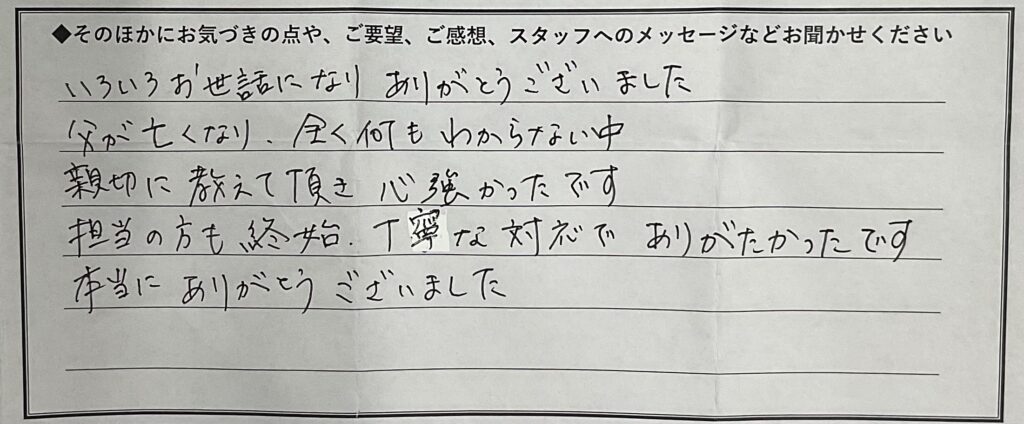 ◆そのほかにお気づきの点や、ご要望、ご感想、スタッフへのメッセージなどお聞かせください
いろいろお世話になり ありがとうございました
父が亡くなり、全く何もわからない中
親切に教えて頂き 心強かったです
担当の方も終始、丁寧な対応で ありがたかったです
本当に ありがとうございました